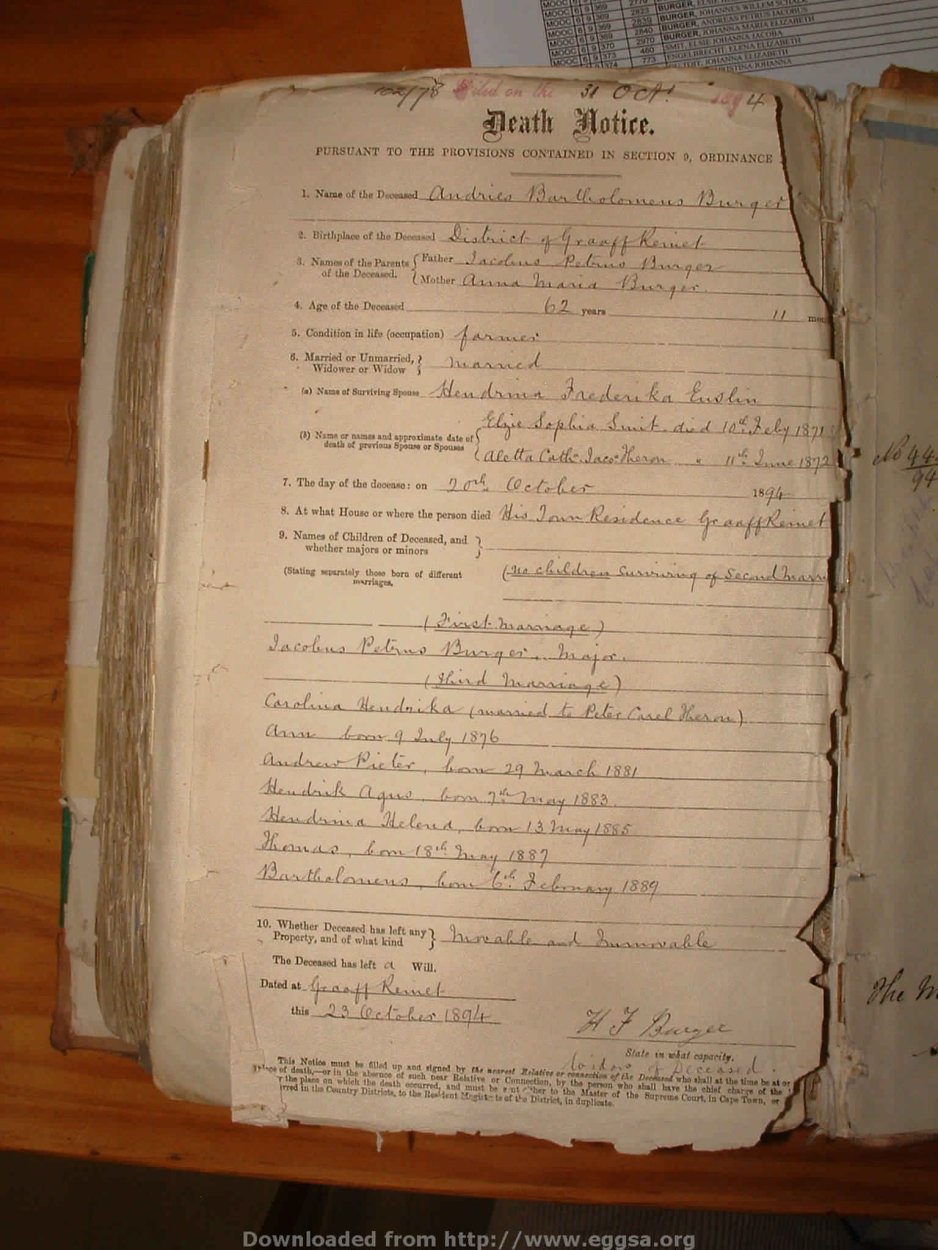 MOOC 6 9 369 2779 BURGER,
MOOC 6 9 369 2823 BURGER, JOHANNES WILLEM
MOOC 6 9 369 2839 BURGER, ANDREAS PETRUS JACOBUS
MOOC 6 9 369 2840 BURGER, JOHANNA MARIA ELIZABETH
MOOC 6 9 370 2970 SMIT, ELSIE JOHANNA JACOBA
MOOC 6 9 373 480 ENGELBRECHT, ELENA ELIZABETH
374 773 CHRISTINA JOHANNA
Filed on the 31 Oct. 1894
Death Notice.
PURSUANT TO THE PROVISIONS CONTAINED IN SECTION 9, ORDINANCE
1. Name of the Deceased Andries Bartholomeus Burger
2. Birthplace of the Deceased District of Graaff Reinet
3. Names of the Parents of the Deceased. Father Jacobus Petrus Burger
Mother Anna Maria Burger.
4. Age of the Deceased 62 years 11
5. Condition in life (occupation) farmer
6. Married or Unmarried, Widower or Widow married
(a) Name of Surviving Spouse Hendrina Frederika Enslin
(b) Name or names and approximate date of death of previous Spouse or Spouses Elzie Sophia Smit died 10th Feby 1871
Aletta Cath: Jaco: Theron " 11th June 1872
No 44
94
7. The day of the decease: on 20th October 1894
8. At what House or where the person died His Town Residence Graaff Reinet
9. Names of Children of Deceased, and whether majors or minors
(Stating separately those born of different marriages. (no children surviving of Second
(First marriage)
Jacobus Petrus Burger. Major.
(Third marriage)
Carolina Hendrika (married to Peter Carel Theron)
Ann born 9 July 1876
Andrew Pieter, born 29 March 1881
Hendrik born 7th May 1883.
Hendrina Helena, born 13 May 1885
Thomas, born 18th May 1887
Bartholomeus, born 6th February 1889
10. Whether Deceased has left any Property, and of what kind Movable and Immovable
The Deceased has left a Will.
Dated at Graaff Reinet
this 23 October 1894
The
H F Burger
State in what capacity.
Widow of Deceased.
This Notice must be filled up and signed by the nearest Relative or connection of the Deceased who shall at the time be at or
place of death,—or in the absence of such near Relative or Connection, by the person who shall have the chief charge of the
the place on which the death occurred, and must be sent either to the Master of the Supreme Court, in Cape Town, or
in the Country Districts, to the Resident Magistrate of the District, in duplicate.
Downloaded from http://www.eggsa.org